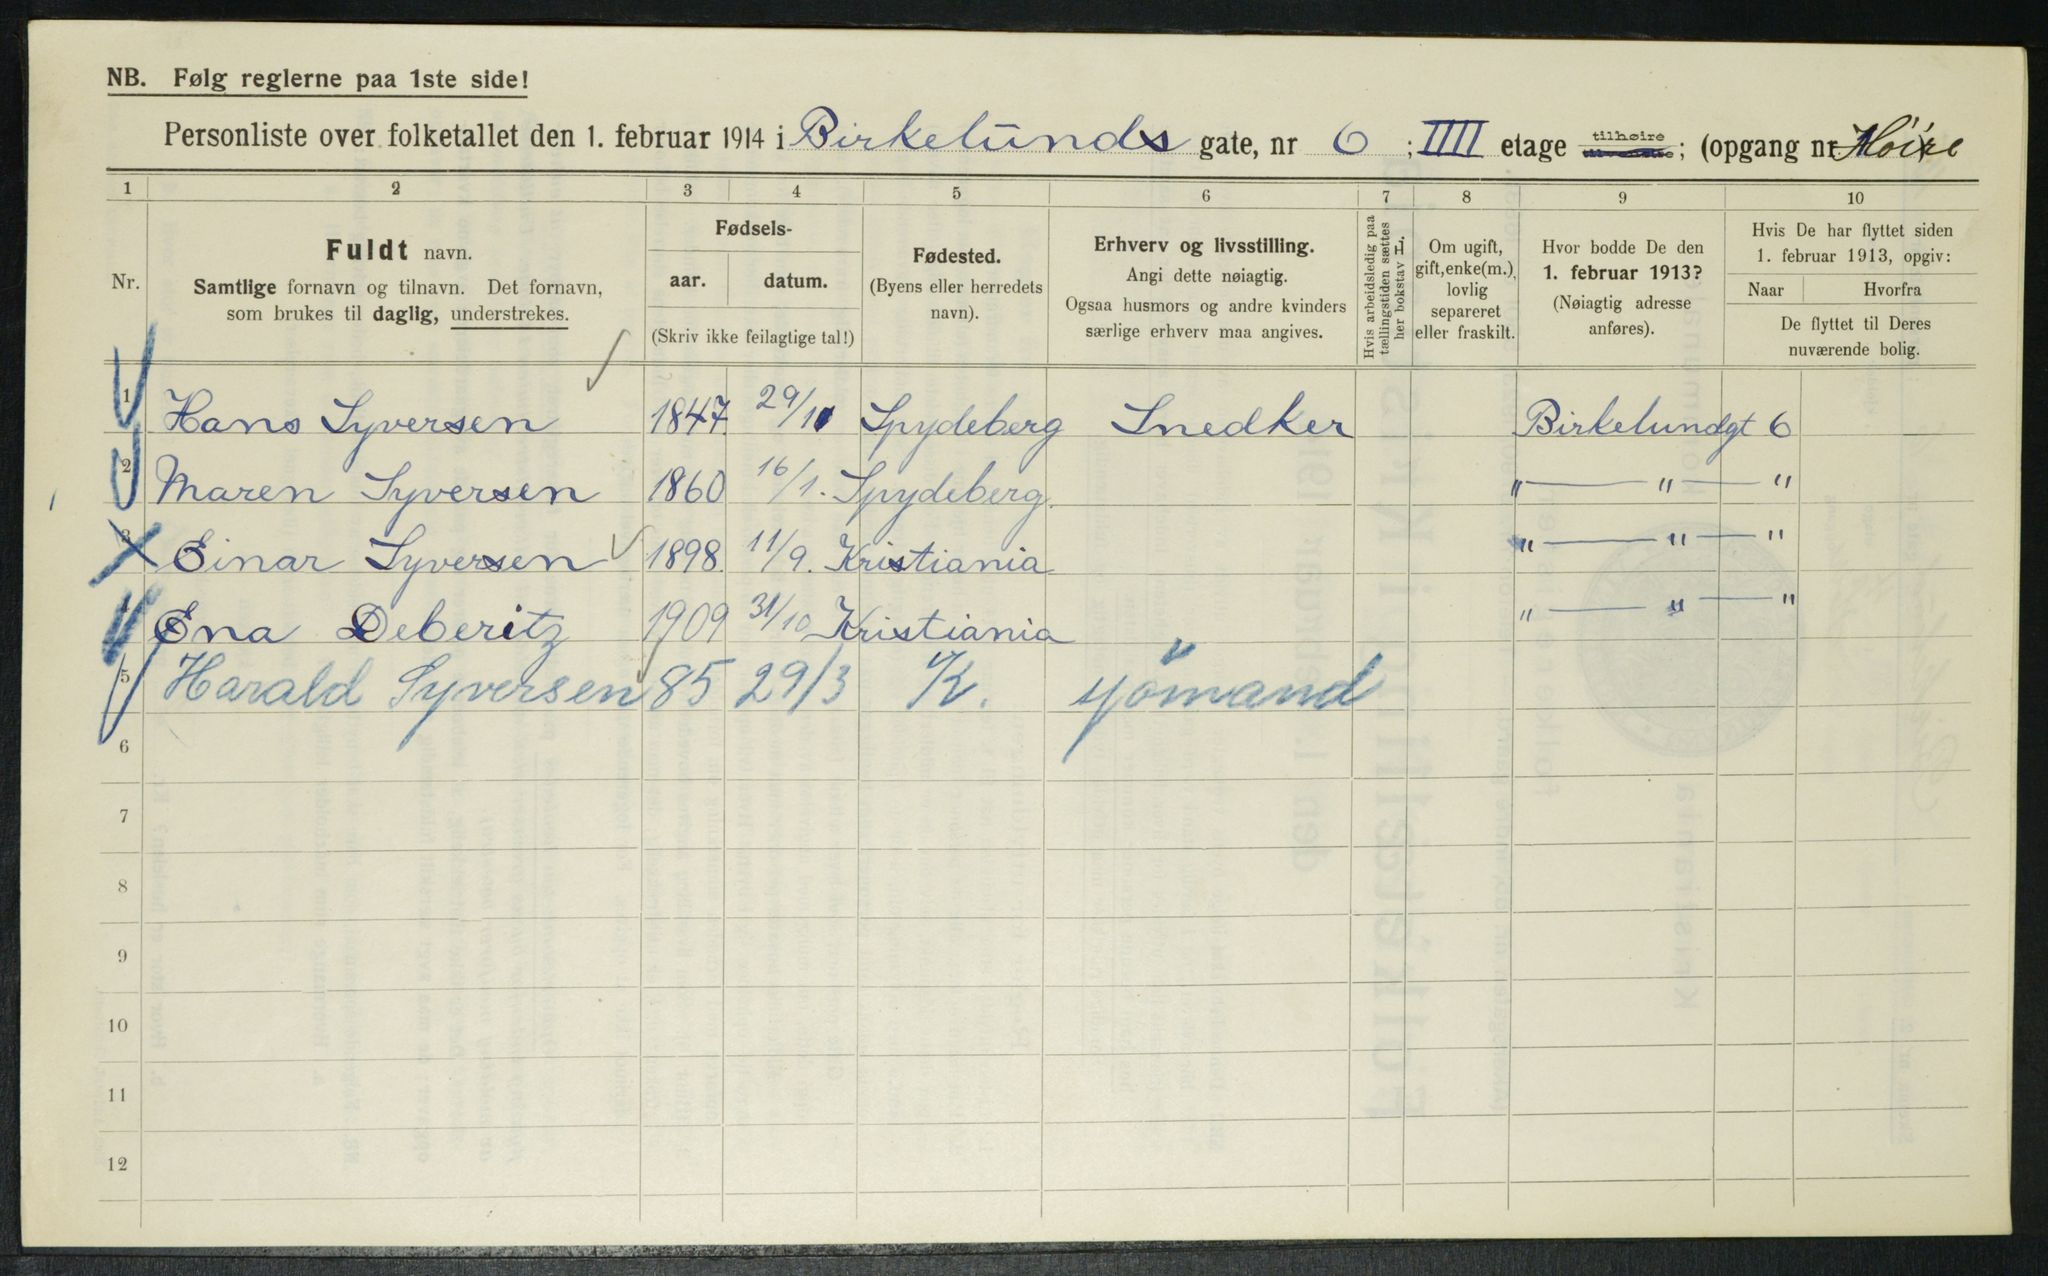 NB. Følg reglerne paa 1ste side!
Personliste over folketallet den 1. februar 1914 i Birkelunds gate, nr 6 ; IIII etage tilhøire tilvenstre; (opgang nr Høire
1 2 3 4 5 6 7 8 9 10
Nr.
Fuldt navn.
Samtlige fornavn og tilnavn. Det fornavn,
som brukes til daglig, understrekes.
Fødsels-
aar. datum.
(Skriv ikke feilagtige tal!)
Fødested.
(Byens eller herredets
navn).
Erhverv og livsstilling.
Angi dette nøiagtig.
Ogsaa husmors og andre kvinders
særlige erhverv maa angives.
Hvis arbeidsledig paa
tællingstiden sættes
her bokstav L.
Om ugift,
gift, enke(m.),
lovlig
separeret
eller fraskilt.
Hvor bodde De den
1. februar 1913?
(Nøiagtig adresse
anføres).
Hvis De har flyttet siden
1. februar 1913, opgiv:
Naar Hvorfra
De flyttet til Deres
nuværende bolig.
1 Hans Syversen 1847 29/11 Spydeberg Snedker Birkelundgt 6
2 Maren Syversen 1860 16/1. Spydeberg. " — " — "
3 Einar Syversen 1898. 11/9. Kristiania " — " — "
4 Ena Deberitz 1909 31/10 Kristiania " — " — "
5 Harald Syversen 85 29/3 K. sjömand
6
7
8
9
10
11
12